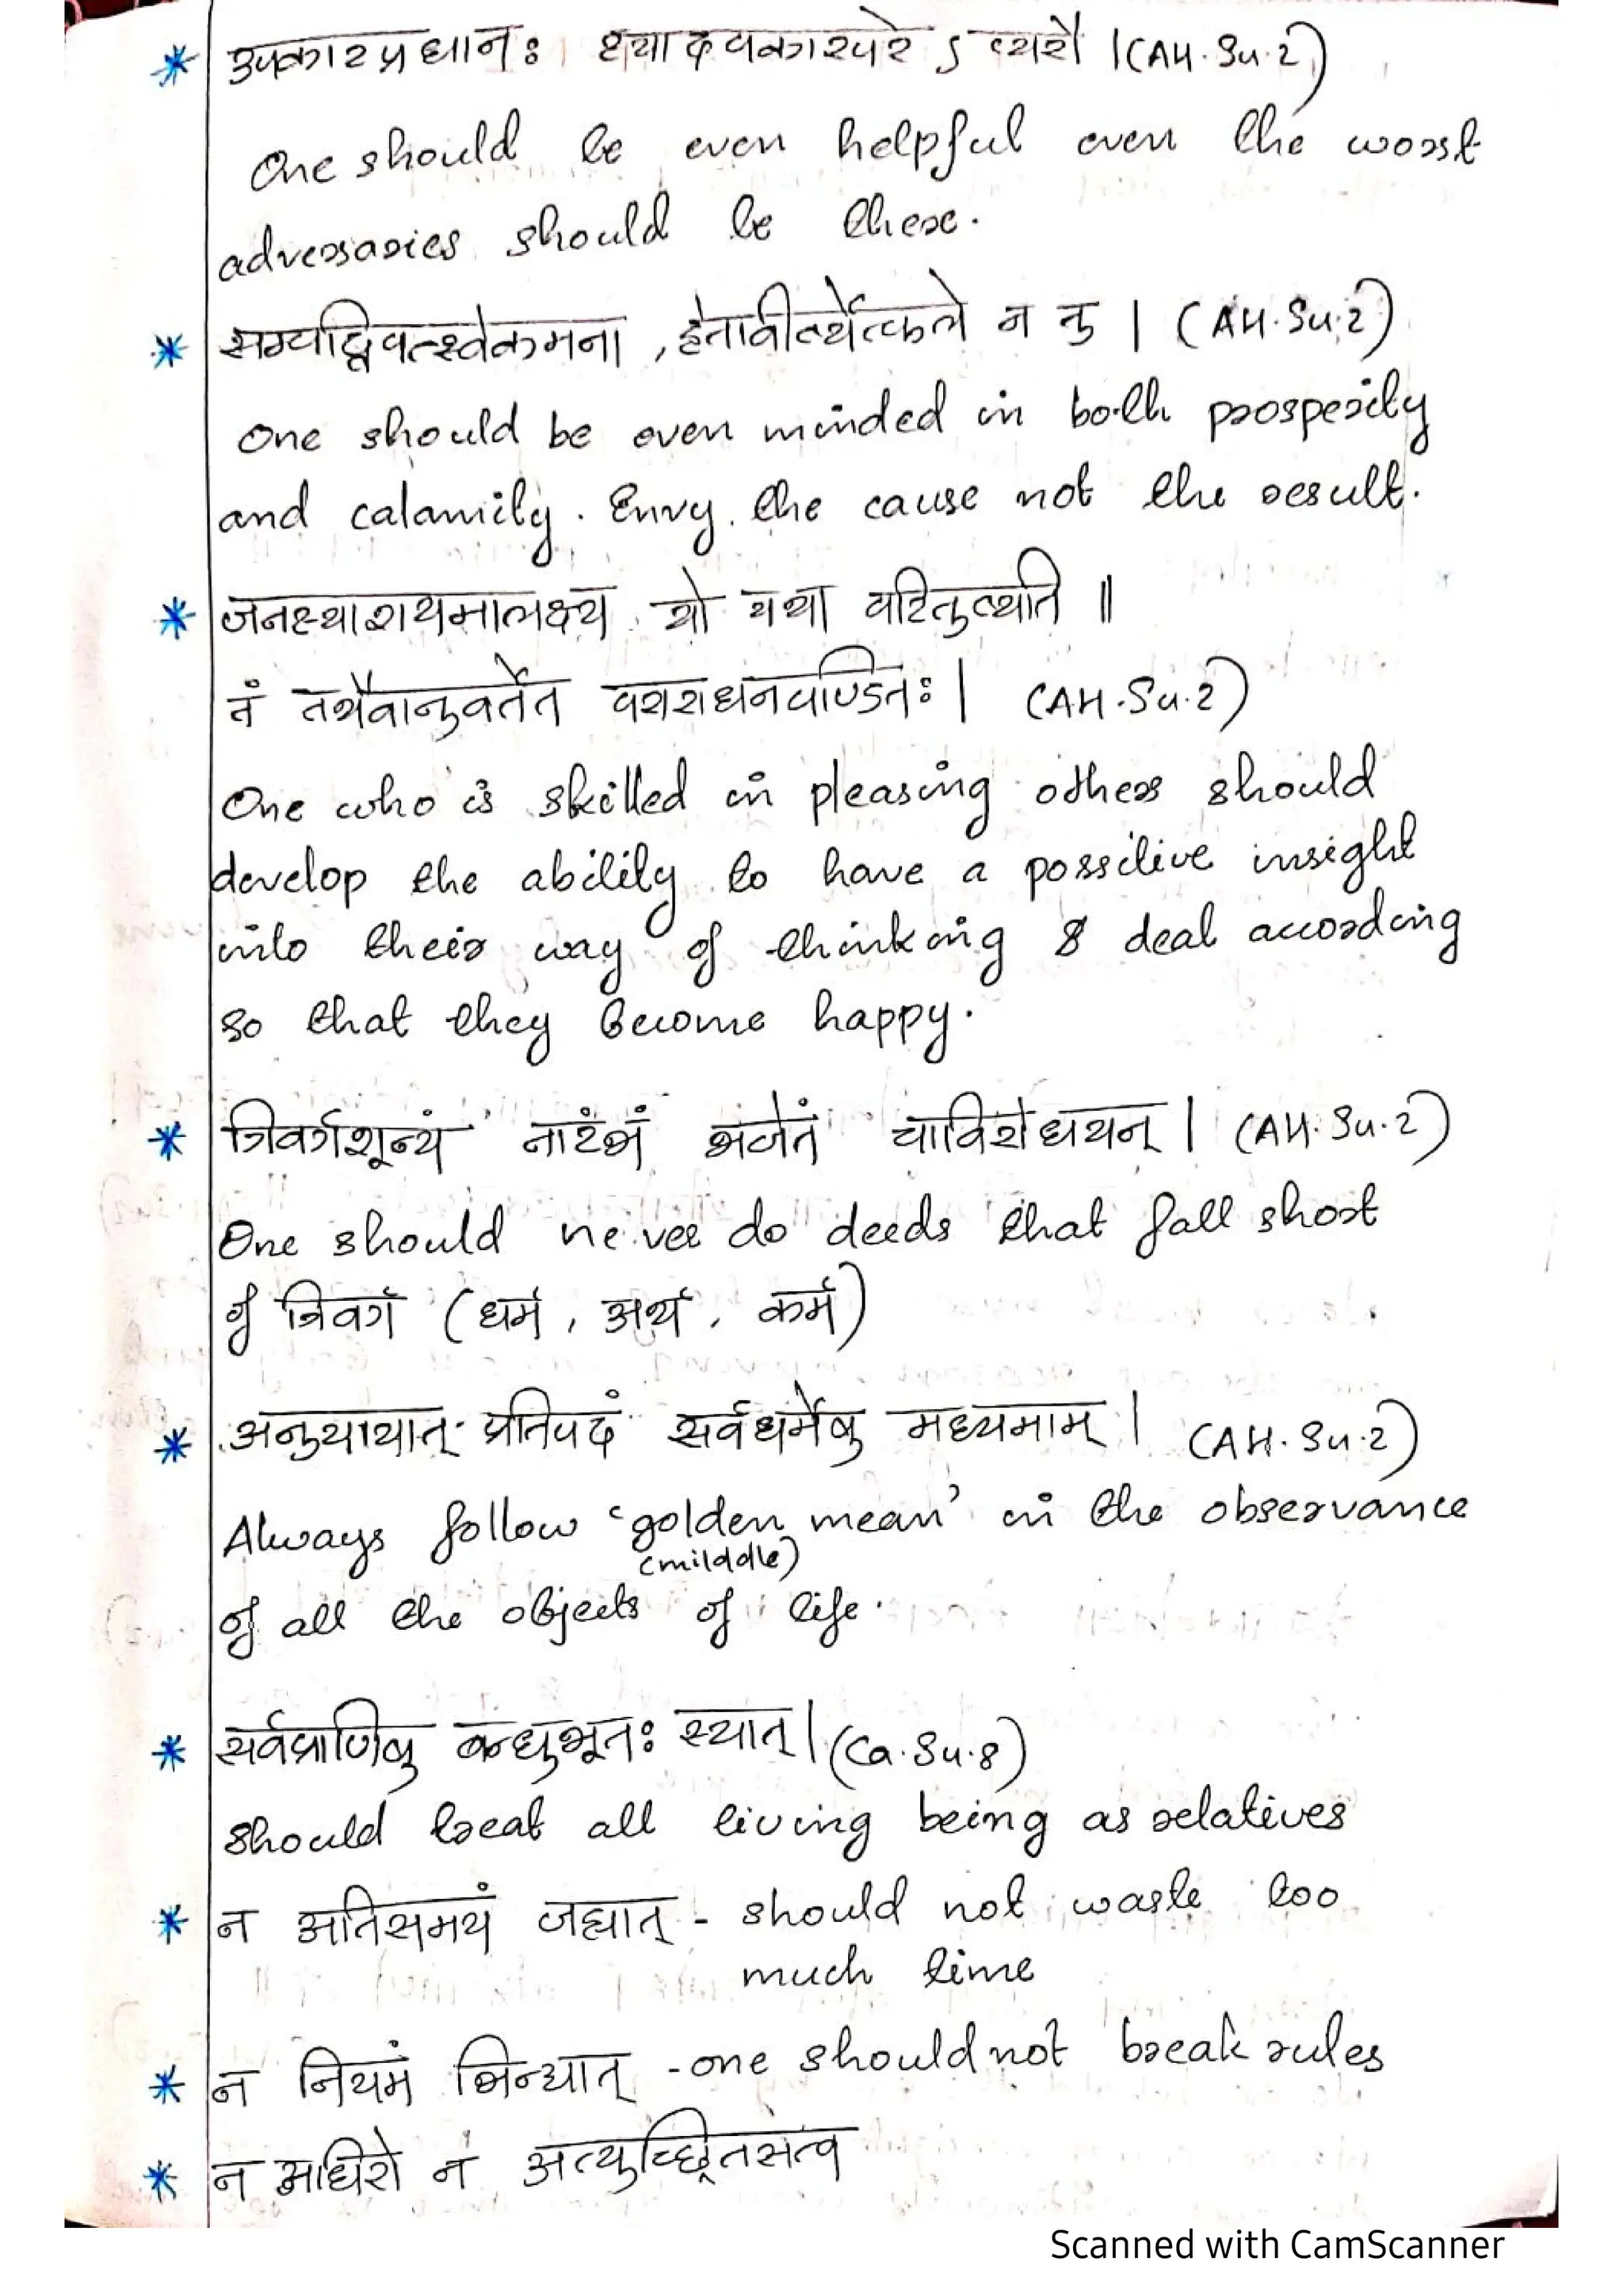 * उपकारप्रधानः स्यादपकारपरेऽप्यरौ । (AH. Su. 2)
One should be even helpful even the worst
adversaries should be there.
* सम्पद्विपत्स्वेकमना, हेतावीर्ष्येत्फले न तु । (AH. Su. 2)
One should be even minded in both prosperity
and calamity. Envy the cause not the result.
* जनस्याशयमालक्ष्य यो यथा परितुष्यति ॥
तं तथैवानुवर्तेत पराराधनपण्डितः । (AH. Su. 2)
One who is skilled in pleasing others should
develop the ability to have a possitive insight
into their way of thinking & deal according
so that they become happy.
* त्रिवर्गशून्यं नारंभं भजेतं चाविरोधयन् । (AH. Su. 2)
One should never do deeds that fall short
of त्रिवर्ग (धर्म, अर्थ, कर्म)
* अनुयायात् प्रतिपदं सर्वधर्मेषु मध्यमाम् । (AH. Su. 2)
Always follow 'golden mean' in the observance
(milddle)
of all the objects of life.
* सर्वप्राणिषु बन्धुभूतः स्यात् । (Ca. Su. 8)
should treat all living being as relatives
* न अतिसमयं जह्यात् - should not waste too
much time
* न नियमं भिन्द्यात् - one should not break rules
* न अधिरो न अत्युच्छ्रितसत्व
Scanned with CamScanner